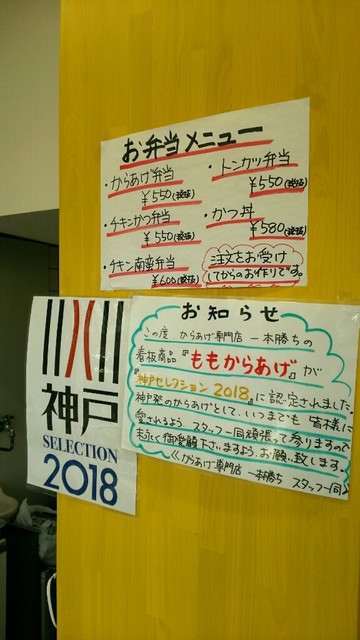 お弁当メニュー
・からあげ弁当
¥550(税抜)
・チキンかつ弁当
¥550(税抜)
・チキン南蛮弁当
¥600(税抜)
・トンカツ弁当
¥550(税抜)
・かつ丼
¥580(税抜)
注文をお受け
してからのお作りです。
神戸
SELECTION
2018
お知らせ
この度、からあげ専門店 一本勝ちの
看板商品『ももからあげ』が
『神戸セレクション2018』に認定されました
神戸発のからあげとして、いつまでも皆様に
愛されるよう、スタッフ一同頑張って参りますので
末永く御愛顧下さいますよう、お願い致します。
≪からあげ専門店 一本勝ち スタッフ一同≫